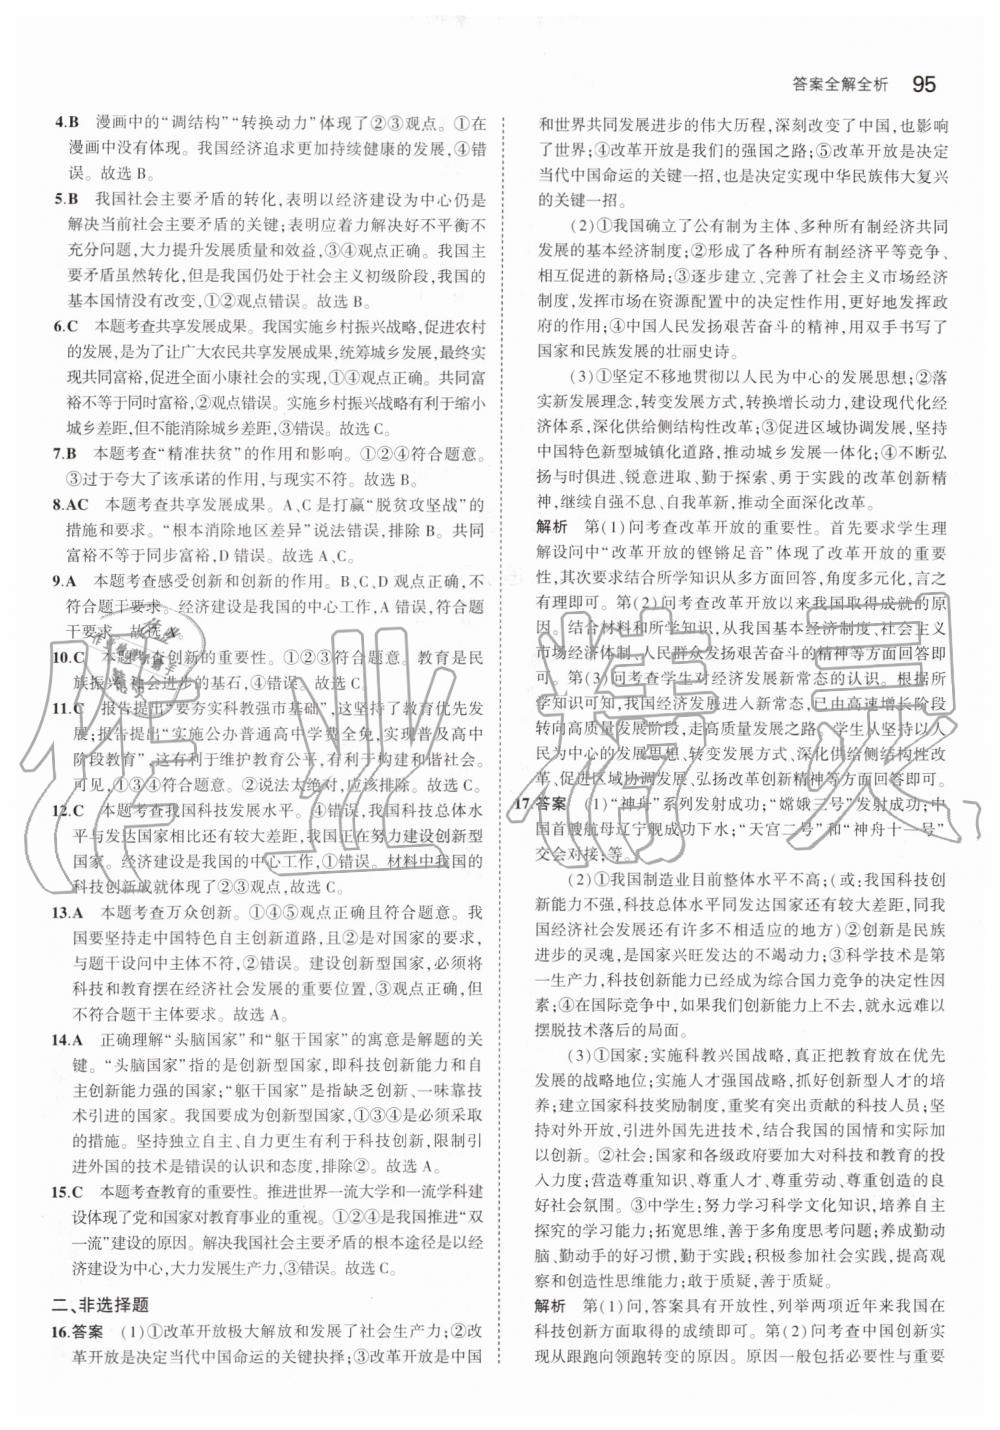 答案全解全析 95
4.B 漫画中的“调结构”“转换动力”体现了②③观点。①在
漫画中没有体现。我国经济追求更加持续健康的发展,④错
误。故选 B。
5.B 我国社会主要矛盾的转化,表明以经济建设为中心仍是
解决当前社会主要矛盾的关键;表明应着力解决好不平衡不
充分问题,大力提升发展质量和效益,③④观点正确。我国主
要矛盾虽然转化,但是我国仍处于社会主义初级阶段,我国的
基本国情没有改变,①②观点错误。故选 B。
6.C 本题考查共享发展成果。我国实施乡村振兴战略,促进农村
的发展,是为了让广大农民共享发展成果,统筹城乡发展,最终实
现共同富裕,促进全面小康社会的实现,①④观点正确。共同富
裕不等于同时富裕,②观点错误。实施乡村振兴战略有利于缩小
城乡差距,但不能消除城乡差距,③错误。故选 C。
7.B 本题考查“精准扶贫”的作用和影响。①②④符合题意。
③过于夸大了该承诺的作用,与现实不符。故选 B。
8.AC 本题考查共享发展成果。A、C 是打赢“脱贫攻坚战”的
措施和要求。“根本消除地区差异”说法错误,排除 B。共同
富裕不等于同步富裕,D 错误。故选 A、C。
9.A 本题考查感受创新和创新的作用。B、C、D 观点正确,不
符合题干要求。经济建设是我国的中心工作,A 错误,符合题
干要求。故选 A。
10.C 本题考查创新的重要性。①②③符合题意。教育是民
族振兴、社会进步的基石,④错误。故选 C。
11.C 报告提出“要夯实科教强市基础”,这坚持了教育优先发
展;报告提出“实施公办普通高中学费全免,实现普及高中
阶段教育”,这有利于维护教育公平、有利于构建和谐社会。
可见,①③④符合题意。②说法太绝对,应该排除。故选 C。
12.C 本题考查我国科技发展水平。④错误,我国科技总体水
平与发达国家相比还有较大差距,我国正在努力建设创新型
国家。经济建设是我国的中心工作,①错误。材料中我国的
科技创新成就体现了②③观点,故选 C。
13.A 本题考查万众创新。①④⑤观点正确且符合题意。我
国要坚持走中国特色自主创新道路,且②是对国家的要求,
与题干设问中主体不符,②错误。建设创新型国家,必须将
科技和教育摆在经济社会发展的重要位置,③观点正确,但
不符合题干主体要求。故选 A。
14.A 正确理解“头脑国家”和“躯干国家”的寓意是解题的关
键。“头脑国家”指的是创新型国家,即科技创新能力和自
主创新能力强的国家;“躯干国家”是指缺乏创新、一味靠技
术引进的国家。我国要成为创新型国家,①③④是必须采取
的措施。坚持独立自主、自力更生有利于科技创新,限制引
进外国的技术是错误的认识和态度,排除②。故选 A。
15.C 本题考查教育的重要性。推进世界一流大学和一流学科建
设体现了党和国家对教育事业的重视。①②④是我国推进“双
一流”建设的原因。解决我国社会主要矛盾的根本途径是以经
济建设为中心,大力发展生产力,③错误。故选 C。
二、非选择题
16.答案 (1)①改革开放极大解放和发展了社会生产力;②改
革开放是决定当代中国命运的关键抉择;③改革开放是中国
和世界共同发展进步的伟大历程,深刻改变了中国,也影响
了世界;④改革开放是我们的强国之路;⑤改革开放是决定
当代中国命运的关键一招,也是决定实现中华民族伟大复兴
的关键一招。
(2)①我国确立了公有制为主体、多种所有制经济共同
发展的基本经济制度;②形成了各种所有制经济平等竞争、
相互促进的新格局;③逐步建立、完善了社会主义市场经济
制度,发挥市场在资源配置中的决定性作用,更好地发挥政
府的作用;④中国人民发扬艰苦奋斗的精神,用双手书写了
国家和民族发展的壮丽史诗。
(3)①坚定不移地贯彻以人民为中心的发展思想;②落
实新发展理念,转变发展方式,转换增长动力,建设现代化经
济体系,深化供给侧结构性改革;③促进区域协调发展,坚持
中国特色新型城镇化道路,推动城乡发展一体化;④不断弘
扬与时俱进、锐意进取、勤于探索、勇于实践的改革创新精
神,继续自强不息、自我革新,推动全面深化改革。
解析 第(1)问考查改革开放的重要性。首先要求学生理
解设问中“改革开放的铿锵足音”体现了改革开放的重要
性,其次要求结合所学知识从多方面回答,角度多元化,言之
有理即可。第(2)问考查改革开放以来我国取得成就的原
因。结合材料和所学知识,从我国基本经济制度、社会主义
市场经济制度、人民群众发扬艰苦奋斗的精神等方面回答即
可。第(3)问考查学生对经济发展新常态的认识。根据所学
知识可知,我国经济发展进入新常态,已由高速增长阶段
转向高质量发展阶段,走高质量发展之路。学生从坚持以人
民为中心的发展思想、转变发展方式、深化供给侧结构性改
革、促进区域协调发展、弘扬改革创新精神等方面回答即可。
17.答案 (1)“神舟”系列发射成功;“嫦娥三号”发射成功;中
国首艘航母辽宁舰成功下水;“天宫二号”和“神舟十一号”
交会对接;等。
(2)①我国制造业目前整体水平不高;(或:我国科技创
新能力不强,科技总体水平同发达国家还有较大差距,同我
国经济社会发展还有许多不相适应的地方)②创新是民族
进步的灵魂,是国家兴旺发达的不竭动力;③科学技术是第
一生产力,科技创新能力已经成为综合国力竞争的决定性因
素;④在国际竞争中,如果我们创新能力上不去,就永远难以
摆脱技术落后的局面。
(3)①国家:实施科教兴国战略,真正把教育放在优先
发展的战略地位;实施人才强国战略,抓好创新型人才的培
养;建立国家科技奖励制度,重奖有突出贡献的科技人员;坚
持对外开放,引进外国先进技术,结合我国的国情和实际加
以创新。②社会:国家和各级政府要加大对科技和教育的投
入力度;营造尊重知识、尊重人才、尊重劳动、尊重创造的良
好社会氛围。③中学生:努力学习科学文化知识,培养自主
探究的学习能力;拓宽思维,善于多角度思考问题;养成勤动
脑、勤动手的好习惯,勤于实践;积极参加社会实践,提高观
察和创造性思维能力;敢于质疑,善于质疑。
解析 第(1)问,答案具有开放性,列举两项近年来我国在
科技创新方面取得的成绩即可。第(2)问考查中国创新实
现从跟跑向领跑转变的原因。原因一般包括必要性与重要